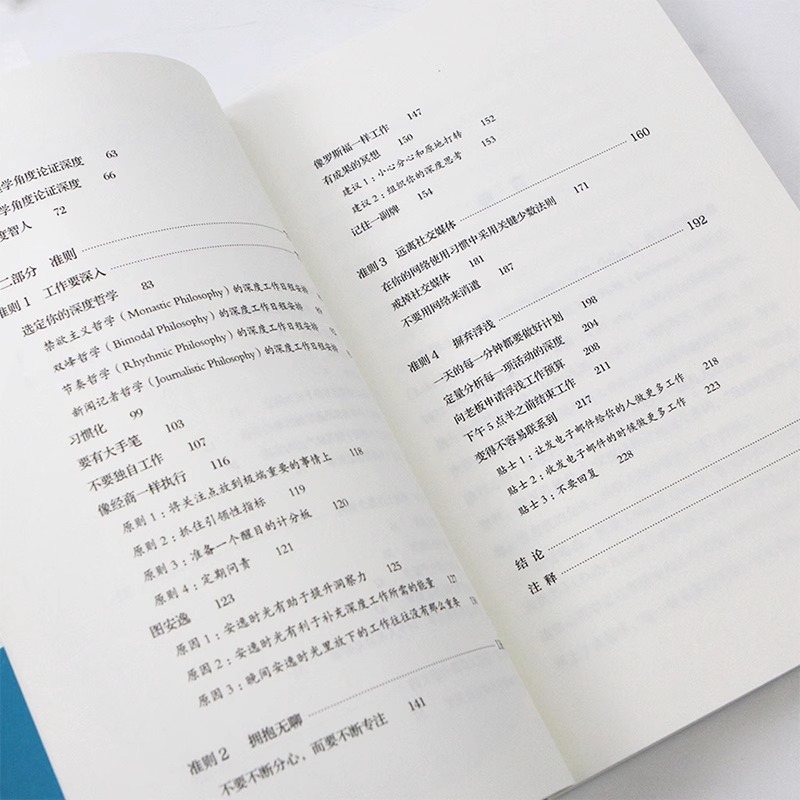 学角度论证深度 63
学角度论证深度 66
度智人 72
二部分 准则
准则1 工作要深入
选定你的深度哲学 83
禁欲主义哲学(Monastic Philosophy)的深度工作日程安排
双峰哲学(Bimodal Philosophy)的深度工作日程安排
节奏哲学(Rhythmic Philosophy)的深度工作日程安排
新闻记者哲学(Journalistic Philosophy)的深度工作日程安排
习惯化 99
要有大手笔 103
不要独自工作 107
像经商一样执行 116
原则1:将关注点放到极端重要的事情上 118
原则2:抓住引领性指标 119
原则3:准备一个醒目的计分板 120
原则4:定期问责 121
图安逸 123
原因1:安逸时光有助于提升洞察力 125
原因2:安逸时光有利于补充深度工作所需的能量 127
原因3:晚间安逸时光里放下的工作往往没有那么重要 130
准则2 拥抱无聊
不要不断分心,而要不断专注 141
像罗斯福一样工作 147
有成果的冥想 150
建议1:小心分心和原地打转 152
建议2:组织你的深度思考 153
记住一副牌 154
准则3 远离社交媒体 160
在你的网络使用习惯中采用关键少数法则 171
戒掉社交媒体 181
不要用网络来消遣 187
准则4 摒弃浮浅 192
一天的每一分钟都要做好计划 198
定量分析每一项活动的深度 204
向老板申请浮浅工作预算 208
下午5点半之前结束工作 211
变得不容易联系到 217
贴士1:让发电子邮件给你的人做更多工作 218
贴士2:收发电子邮件的时候做更多工作 223
贴士3:不要回复 228
结论
注释